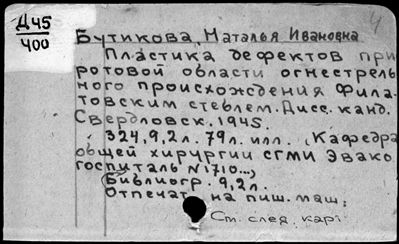 Д45
400
4
Бутикова, Наталья Ивановна
Пластика дефектов при
ротовой области огнестрель
ного происхождения фила-
товским стеблем. Дисс. канд.
Свердловск. 1945.
324,9,2л. 79л. илл. (Кафедра
общей хирургии СГМИ Эвако
госпиталь N1710...)
Библиогр. 9,2л.
Отпечат. на пиш. маш.
См. след. карт